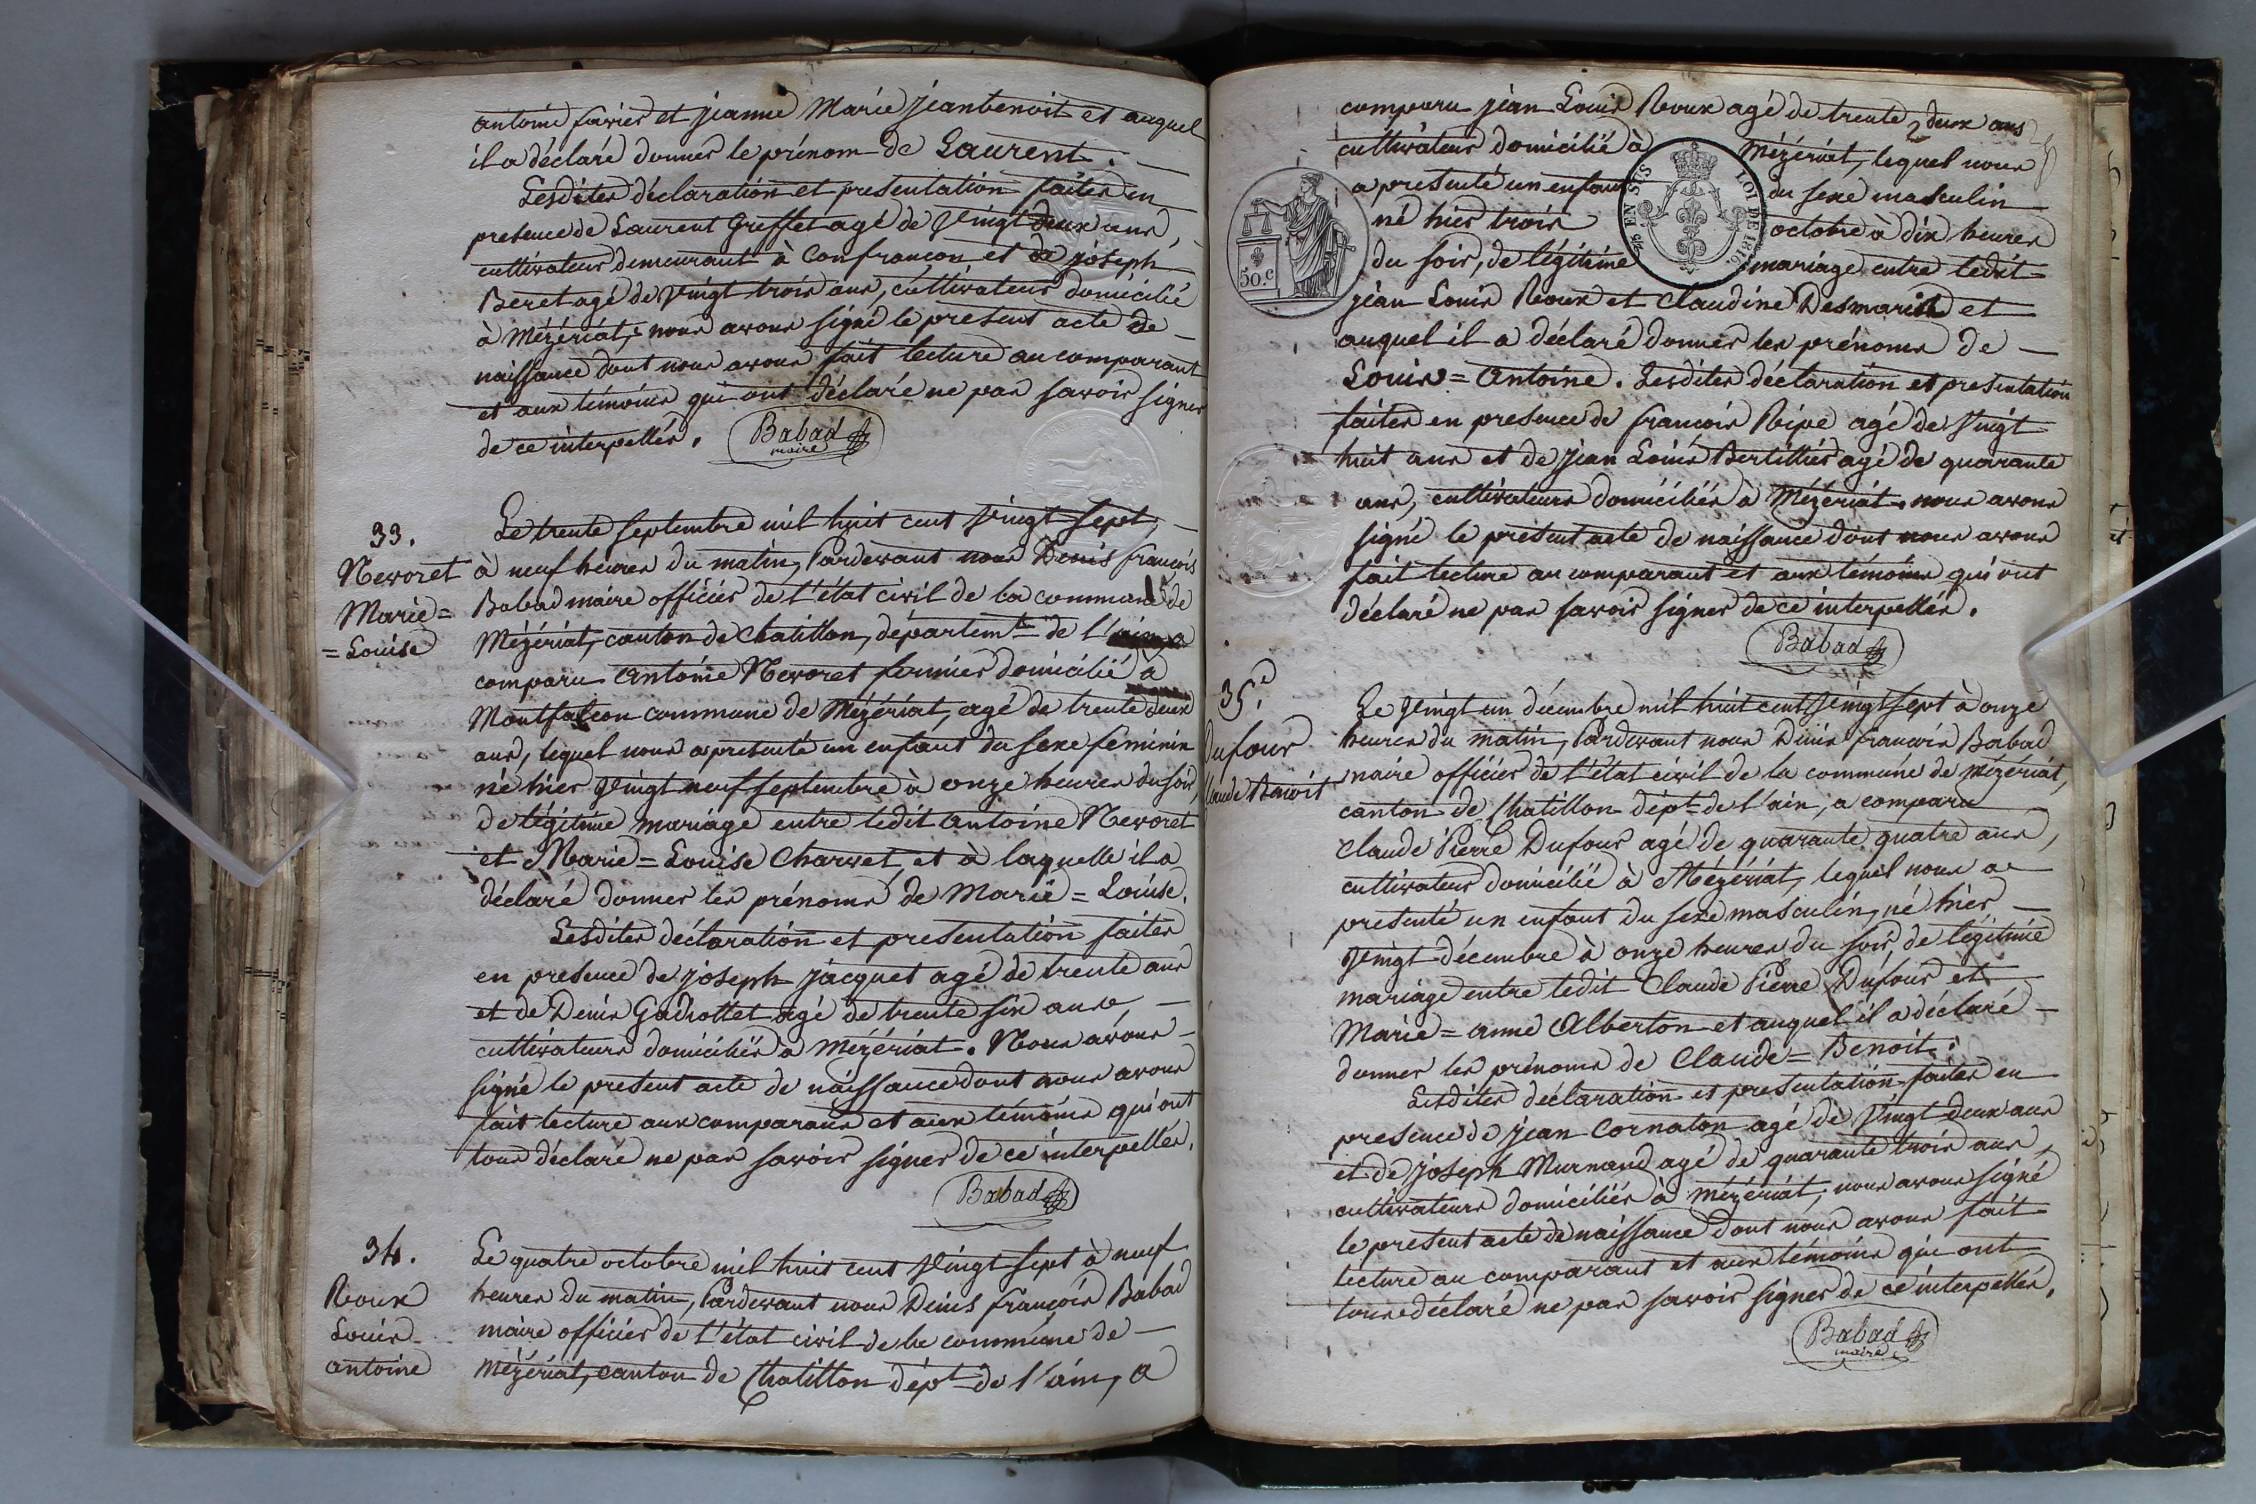 antoine favier et jeanne Marie jeanbenoit et auquel
il a déclaré donner le prénom de Laurent.
Lesdites déclaration et presentation faites en
presence de Laurent Greffet agé de vingt deux ans,
cultivateur demeurant à Confrançon et de joseph
Beret agé de vingt trois ans, cultivateur domicilié
à Mézériat; nous avons signé le present acte de
naissance dont nous avons fait lecture au comparant
et aux témoins qui ont déclaré ne pas savoir signer
de ce interpellés. Babad
maire
33.
Nevoret
Marie=
=Louise
Le trente septembre mil huit cent vingt sept,
à neuf heures du matin, Pardevant nous Denis françois
Babad maire officier de l'état civil de la commune de
Mézériat, canton de Chatillon, départemt. de l'ain, a
comparu Antoine Nevoret fermier domicilié à
Montfalcon commune de Mézériat, agé de trente deux
ans, lequel nous a presenté un enfant du sexe féminin
né hier vingt neuf septembre à onze heures du soir,
de légitime mariage entre ledit Antoine Nevoret
et Marie=Louise Charvet, et à laquelle il a
déclaré donner les prénoms de Marie=Louise.
Lesdites déclaration et presentation faites
en presence de joseph jacquet agé de trente ans
et de Denis Gadiollet agé de trente six ans,
cultivateurs domiciliés à Mézériat. Nous avons
signé le present acte de naissance dont nous avons
fait lecture aux comparans et aux témoins qui ont
tous déclaré ne pas savoir signer de ce interpellés.
Babad
34.
Roux
Louis
antoine
Le quatre octobre mil huit cent vingt sept à neuf
heures du matin, Pardevant nous Denis françois Babad
maire officier de l'état civil de la commune de
Mézériat, canton de Chatillon dépt. de l'ain, a
comparu jean Louis Roux agé de trente deux ans
cultivateur domicilié à Mézériat, lequel nous
a presenté un enfant du sexe masculin
né hier trois octobre à dix heures
du soir, de légitime mariage entre ledit
jean Louis Roux et Claudine Desmaris et
auquel il a déclaré donner les prénoms de
Louis=Antoine. Lesdites déclaration et presentation
faites en presence de françois Pipe agé de vingt
huit ans et de jean Louis Bertillier agé de quarante
ans, cultivateurs domiciliés à Mézériat. nous avons
signé le present acte de naissance dont nous avons
fait lecture au comparant et aux témoins qui ont
déclaré ne pas savoir signer de ce interpellés.
Babad
50.c
EN SUS
LOI DE 1816.
35.e
Dufour
Claude Benoit
Le vingt un décembre mil huit cent vingt sept à onze
heures du matin, Pardevant nous Denis françois Babad
maire officier de l'état civil de la commune de Mézériat,
canton de Chatillon dépt. de l'ain, a comparu
Claude Pierre Dufour agé de quarante quatre ans,
cultivateur domicilié à Mézériat, lequel nous a
presenté un enfant du sexe masculin, né hier
vingt décembre à onze heures du soir, de légitime
mariage entre ledit Claude Pierre Dufour et
Marie=anne Alberton et auquel il a déclaré
donner les prénoms de Claude=Benoit.
Lesdites déclaration et presentation faites en
presence de jean Cornaton agé de vingt deux ans
et de joseph Murnand agé de quarante trois ans,
cultivateurs domiciliés à Mézériat; nous avons signé
le present acte de naissance dont nous avons fait
lecture au comparant et aux témoins qui ont
tous déclaré ne pas savoir signer de ce interpellés.
Babad
maire